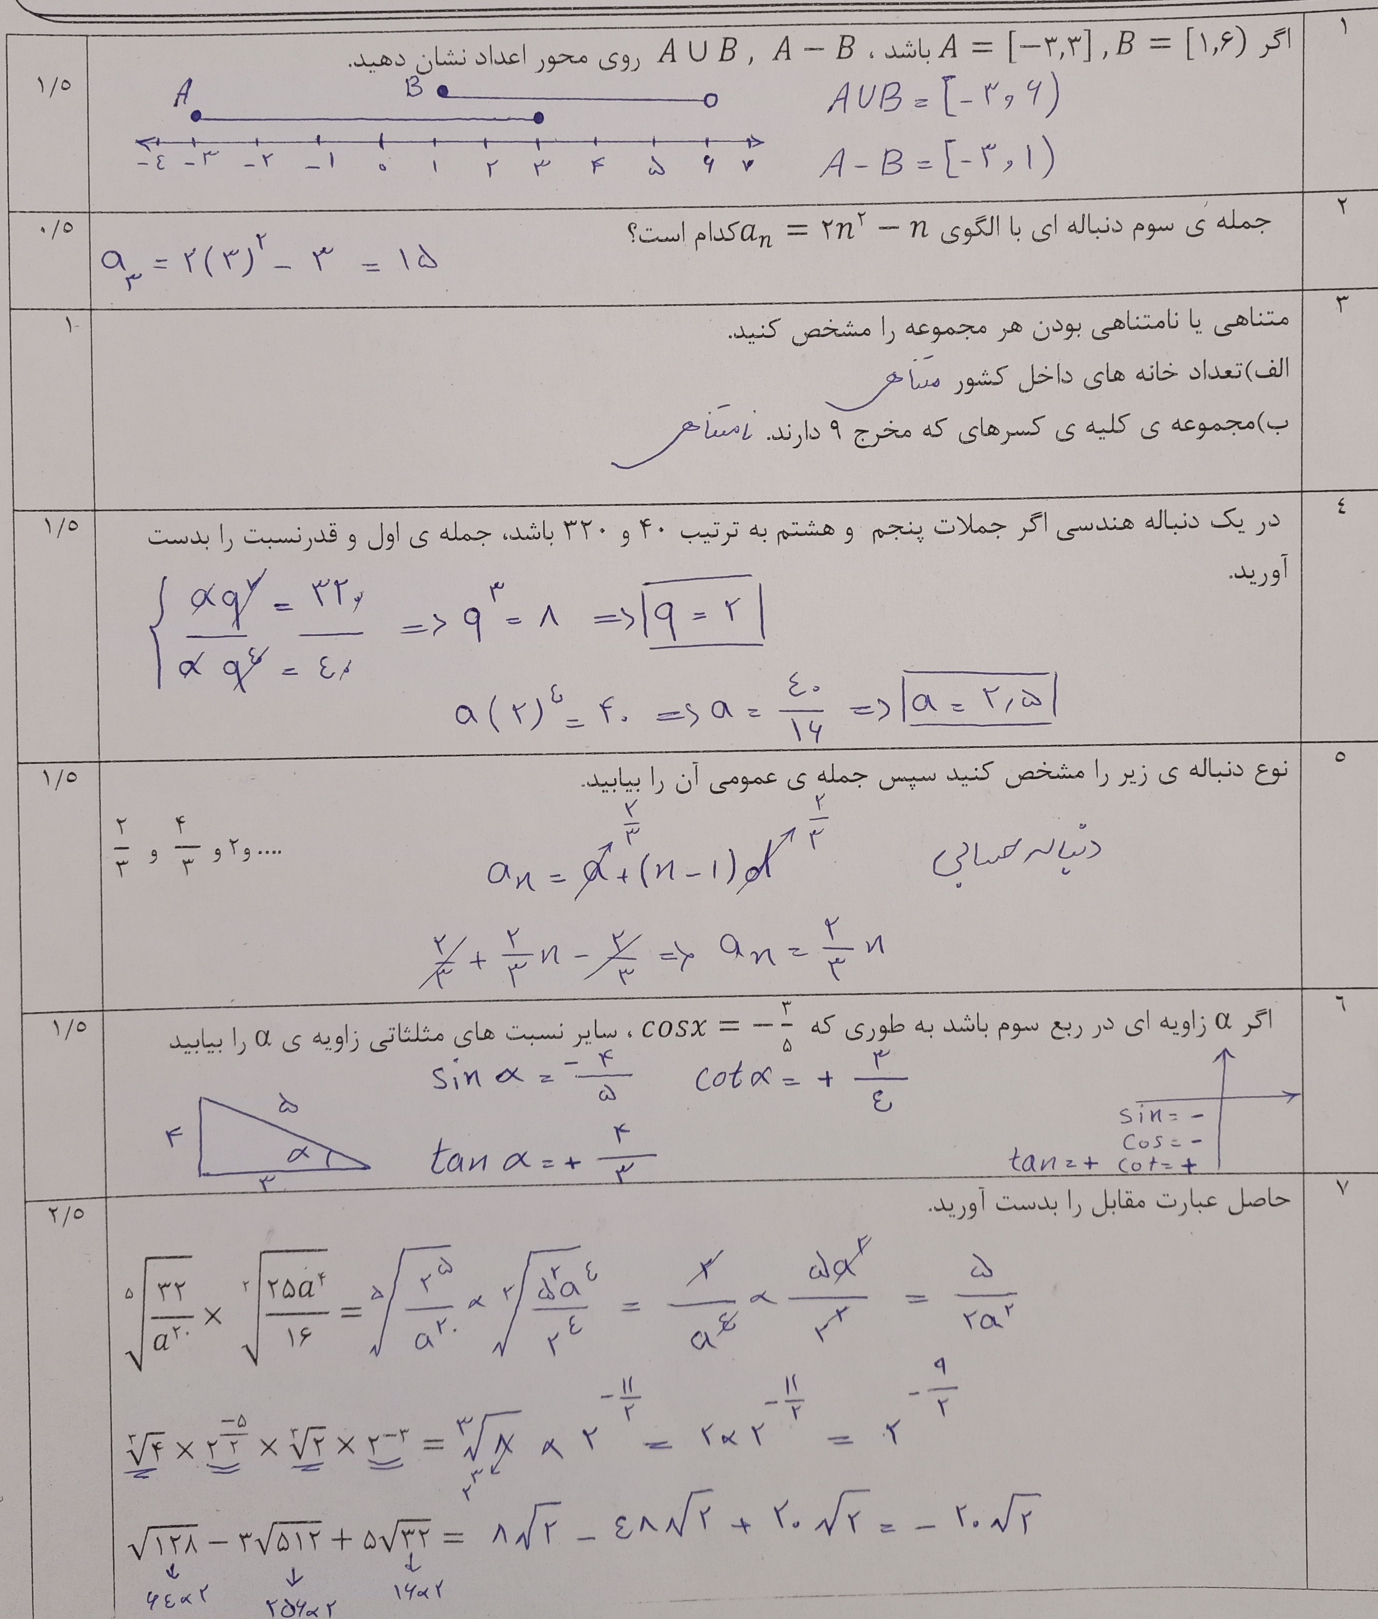 ۱
اگر A = [−۳,۳] , B = [۱,۶) باشد ، A ∪ B , A − B روی محور اعداد نشان دهید.
۱/۵
A B
A∪B = [-۳, ۶)
-٤ -۳ -۲ -۱ ۰ ۱ ۲ ۳ ۴ ۵ ۶ ۷
A-B = [-۳, ۱)
۲
جمله ی سوم دنباله ای با الگوی aₙ = ۲n² − n کدام است؟
۰/۵
a₃ = ۲(۳)² - ۳ = ۱۵
۳
متناهی یا نامتناهی بودن هر مجموعه را مشخص کنید.
۱
الف)تعداد خانه های داخل کشور متناهی
ب)مجموعه ی کلیه ی کسرهای که مخرج ۹ دارند. نامتناهی
٤
در یک دنباله هندسی اگر جملات پنجم و هشتم به ترتیب ۴۰ و ۳۲۰ باشد، جمله ی اول و قدرنسبت را بدست
آورید.
۱/۵
aq⁷ = ۳۲۰
aq⁴ = ٤۰
=> q³ = ۸ => q = ۲
a(۲)⁴ = ۴۰ => a = ٤۰/۱۶ => a = ۲٫۵
۵
نوع دنباله ی زیر را مشخص کنید سپس جمله ی عمومی آن را بیابید.
۱/۵
۲/۳ و ۴/۳ و ۲ و ....
دنباله حسابی
۲/۳ ۲/۳
aₙ = a + (n-1)d
۲/۳ + ۲/۳ n - ۲/۳ => aₙ = ۲/۳ n
۶
اگر α زاویه ای در ربع سوم باشد به طوری که cosx = −۳/۵ ، سایر نسبت های مثلثاتی زاویه ی α را بیابید
۱/۵
sin α = -۴/۵ cot α = + ۳/٤
۴ ۵ α ۳
tan α = + ۴/۳
sin = -
cos = -
tan = + cot = +
۷
حاصل عبارت مقابل را بدست آورید.
۲/۵
⁵√(۳۲/a²⁰) × ²√(۲۵a⁴/۱۶) = ⁵√(۲⁵/a²⁰) × ²√(۵²a⁴/۲⁴) = ۲/a⁴ × ۵a²/۲² = ۵/۲a²
³√۴ × ۲^(−۵/۲) × ³√۲ × ۲⁻³ = ³√۸ × ۲^(-۱۱/۲) = ۲×۲^(-۱۱/۲) = ۲^(-۹/۲)
۲³
√۱۲۸ − ۳√۵۱۲ + ۵√۳۲ = ۸√۲ - ٤۸√۲ + ۲۰√۲ = -۲۰√۲
۶٤×۲ ۲۵۶×۲ ۱۶×۲